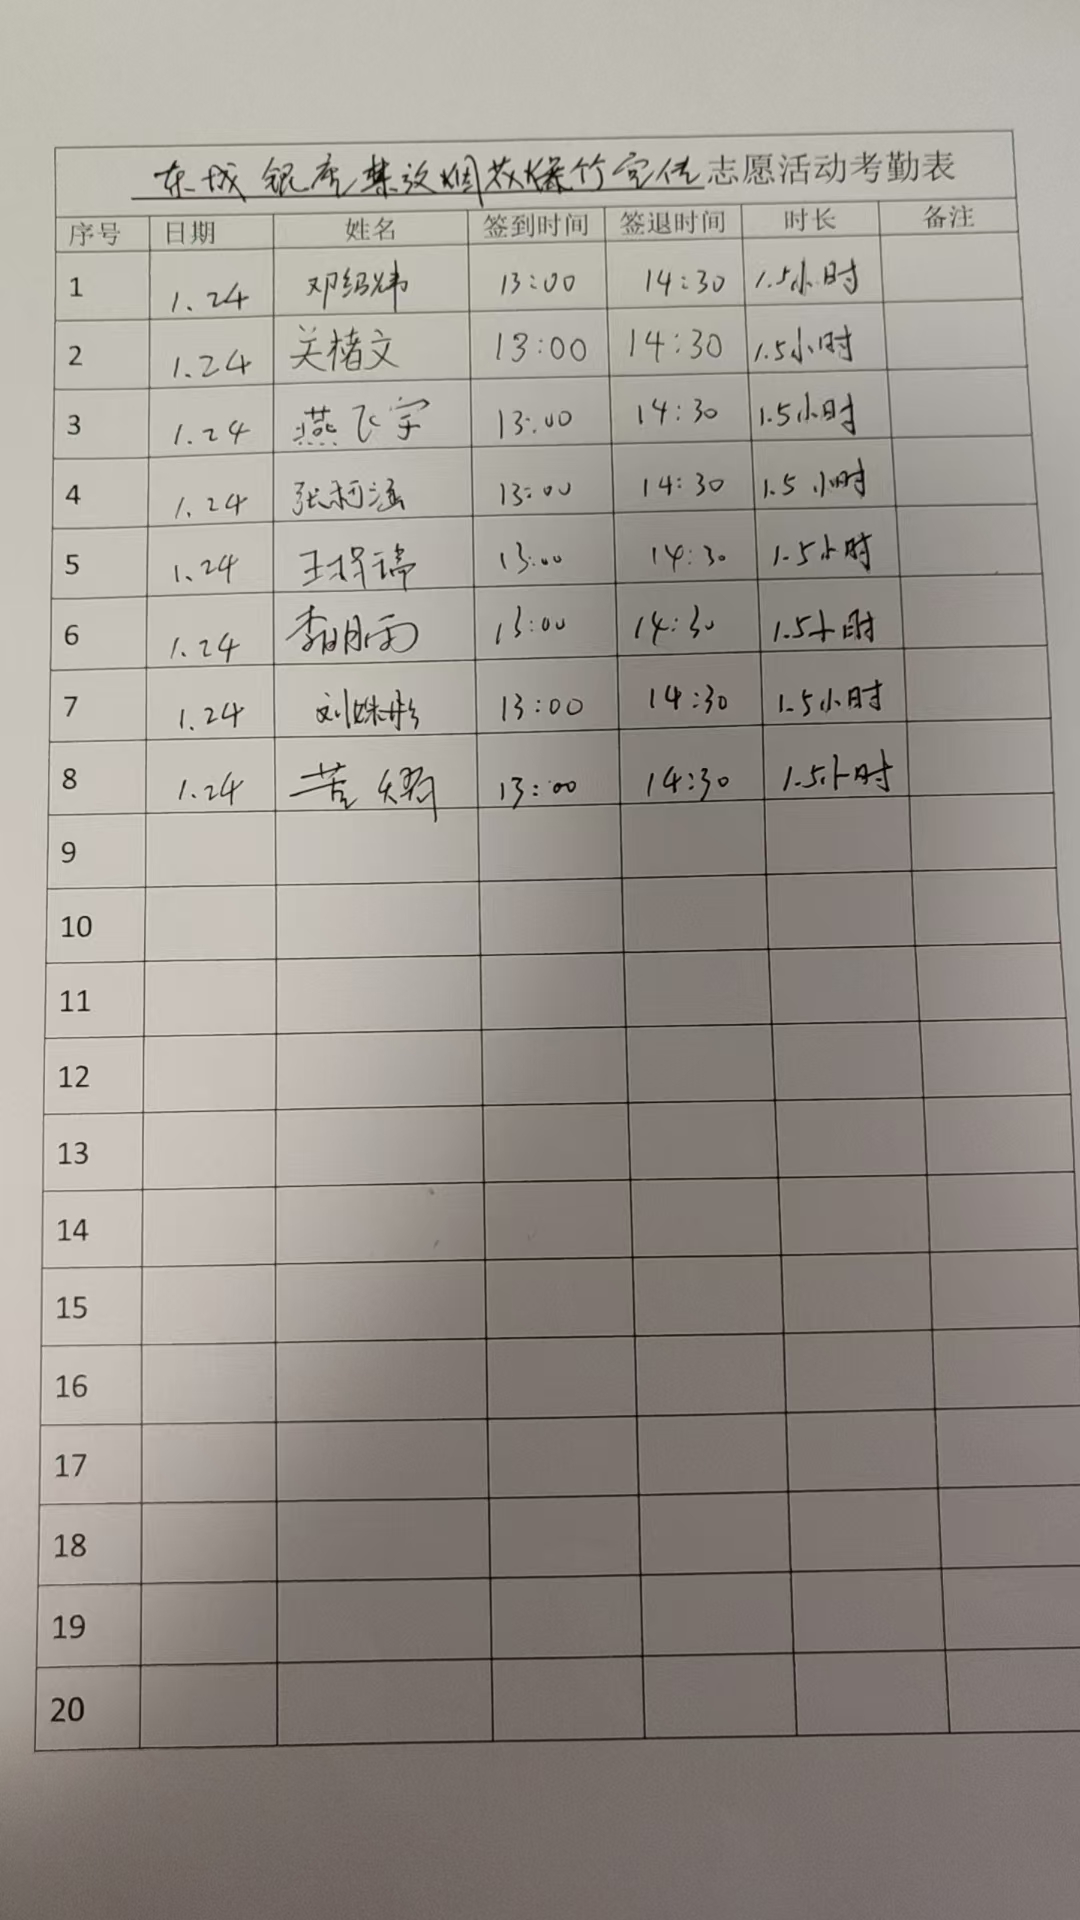 东城银座禁放烟花爆竹宣传志愿活动考勤表
序号 日期 姓名 签到时间 签退时间 时长 备注
1 1.24 邓绍炜 13:00 14:30 1.5小时
2 1.24 关楮文 13:00 14:30 1.5小时
3 1.24 燕飞宇 13:00 14:30 1.5小时
4 1.24 张柯涵 13:00 14:30 1.5小时
5 1.24 13:00 14:30 1.5小时
6 1.24 李明雨 13:00 14:30 1.5小时
7 1.24 刘姝彤 13:00 14:30 1.5小时
8 1.24 13:00 14:30 1.5小时
9
10
11
12
13
14
15
16
17
18
19
20